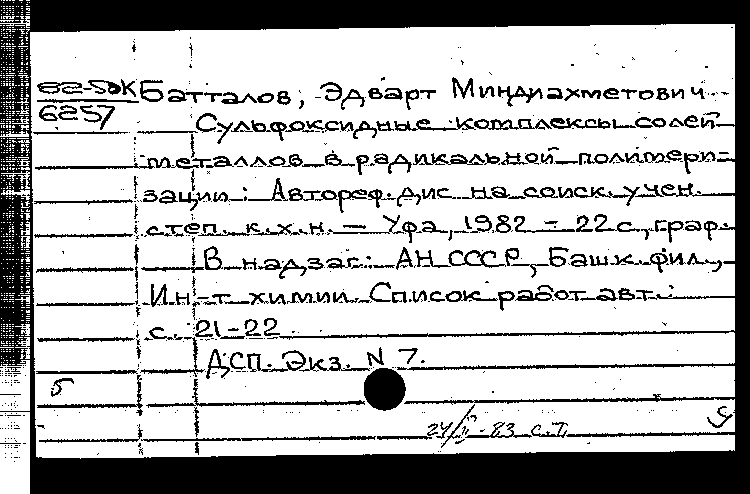 82-5дк Батталов, Эдварт Миндиахметович
6257
Сульфоксидные комплексы солей
металлов в радикальной полимери-
зации: Автореф. дис на соиск. учен.
степ. к.х.н. — Уфа, 1982 - 22 с, граф.
В надзаг: АН СССР, Башк. фил.,
Ин-т химии. Список работ авт.:
с. 21-22
ДСП. Экз. N 7.
5
24/II-83 с.т.